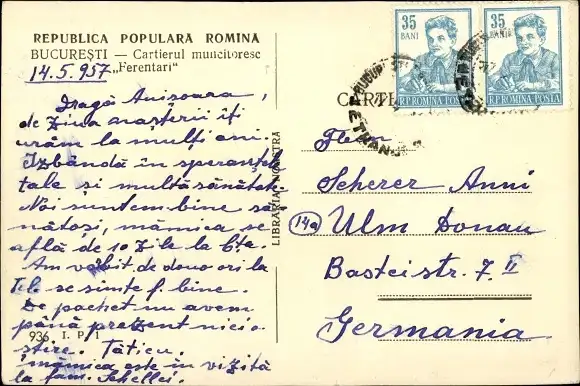 REPUBLICA POPULARA ROMINA
BUCUREȘTI — Cartierul muncitoresc
„Ferentari"
14.5.957
Dragă Anișoara,
de ziua nașterii îți
urăm la mulți ani.
Izbândă în speranțele
tale și multă sănătate.
Noi suntem bine să-
nătoși, mămica se
află de 10 zile la Cța.
Am vorbit de două ori la
Tel. se simte f. bine.
De pachet nu avem
până prezent nici o
știre. Tăticu.
mămica este în vizită
la fam. Schellei.
936. I. P. 1
LIBRĂRIA NOASTRĂ
35
BANI
R.P. ROMINA POSTA
35
BANI
R.P. ROMINA POSTA
CARTE
Scherer Anni
14a Ulm Donau
Basteistr. 7 II
Germania